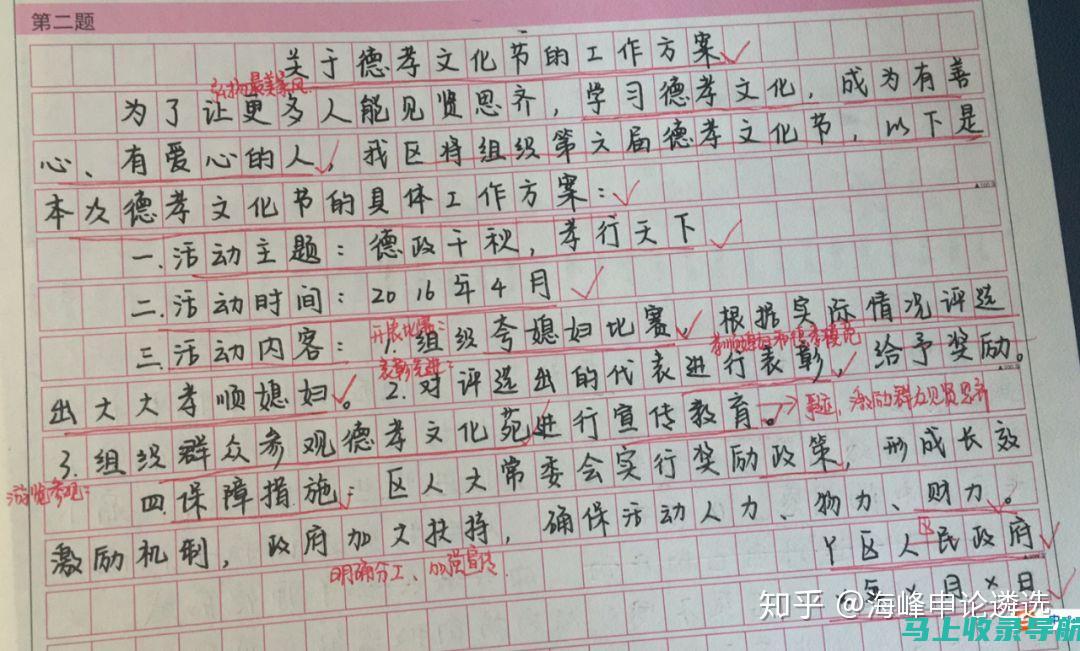 第二题
关于德孝文化节的工作方案
弘扬最美家风
为了让更多人能见贤思齐，学习德孝文化，成为有善
心、有爱心的人，我区将组织第六届德孝文化节，以下是
本次德孝文化节的具体工作方案：
一.活动主题：德政千秋，孝行天下
二.活动时间：2016年4月
开展比赛：
三.活动内容：1.组织夸媳妇比赛，根据实际情况评选
表彰先进：
出大大孝顺媳妇。2.对评选出的代表进行表彰，给予奖励。
激励群众见贤思齐
3.组织群众参观德孝文化苑进行宣传教育。
游览参观：
四.保障措施：区人大常委会实行奖励政策，形成长效
激励机制，政府加大扶持，确保活动人力、物力、财力。
明确分工、加强宣传
区
丫区人民政府
×年×月×日
知乎 @海峰申论遴选
马上收录导航